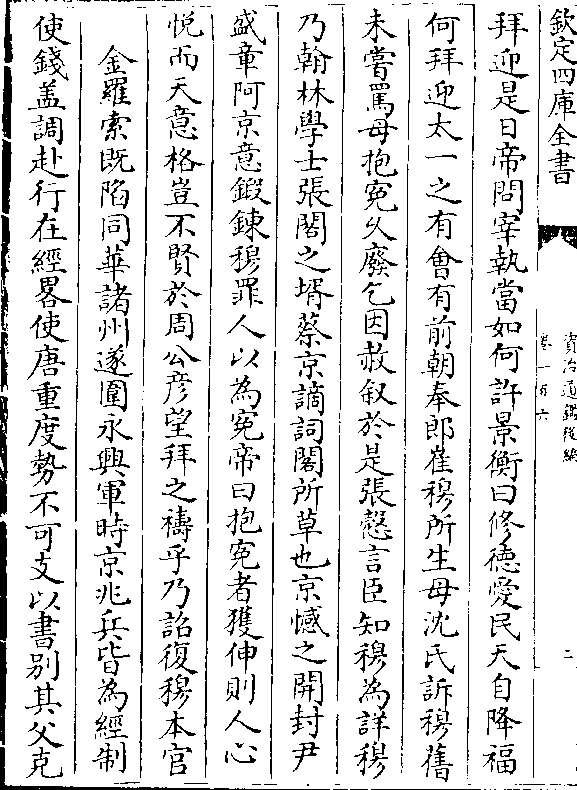 欽定四庫全書
資治通鑑後編
卷一百六
二
拜迎是日帝問宰執當如何許景衡曰修德愛民天自降福
何拜迎太一之有㑹有前朝奉郎崔穆所生母沈氏訴穆舊
未嘗罵母抱寃乆廢乞因赦叙於是張慤言臣知穆為詳穆
乃翰林學士張閣之壻蔡京謫詞閣所草也京憾之開封尹
盛章阿京意鍛鍊穆罪人以為寃帝曰抱寃者獲伸則人心
悦而天意格豈不賢於周公彦望拜之禱乎乃詔復穆本官
金羅索既陷同華諸州遂圍永興軍時京兆兵皆為經制
使錢盖調赴行在經畧使唐重度勢不可支以書别其父克